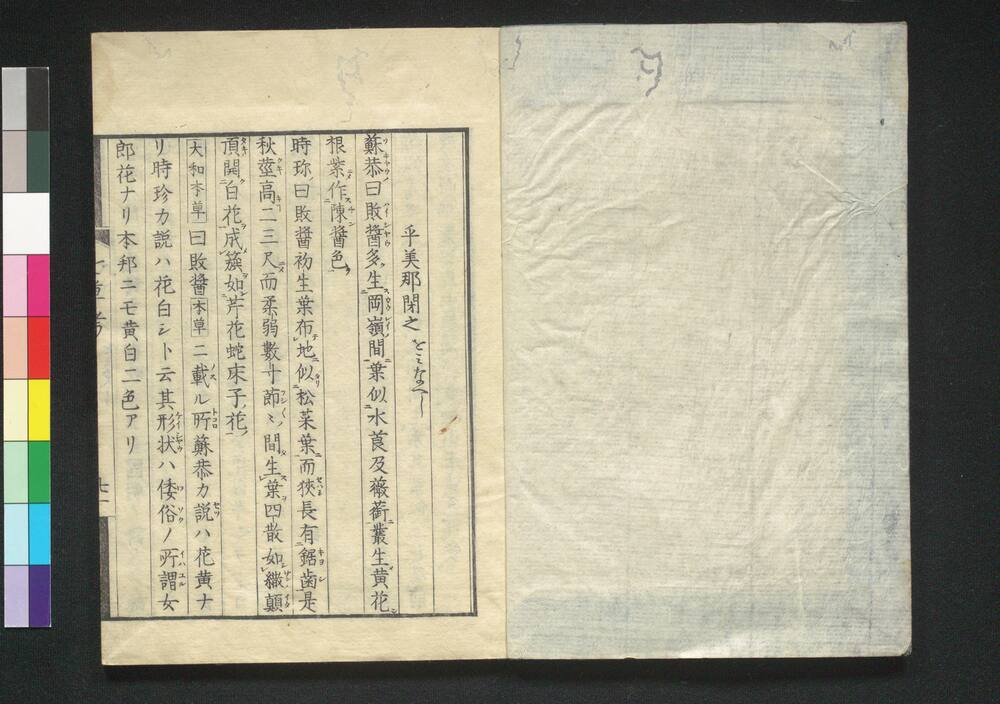 乎美那閇之 をみなへし
蘇恭曰敗醬多生岡嶺間葉似水莨及薇蘅叢生黄花
根紫作陳醬色
時珍曰敗醬初生葉布地似松菜葉而狹長有鋸歯是
秋莖高二三尺而柔弱數寸節〻間生葉四散如繖顛
頂開白花成簇如芹花蛇床子花
大和本草曰敗醬本草ニ載ル所蘇恭カ説ハ花黄ナ
リ時珍カ説ハ花白シト云其形状ハ倭俗ノ所謂女
郎花ナリ本邦ニモ黄白二色アリ